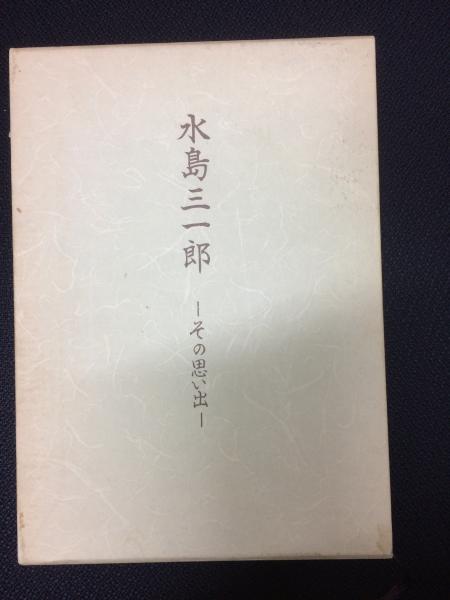 水島三一郎
―その思い出―